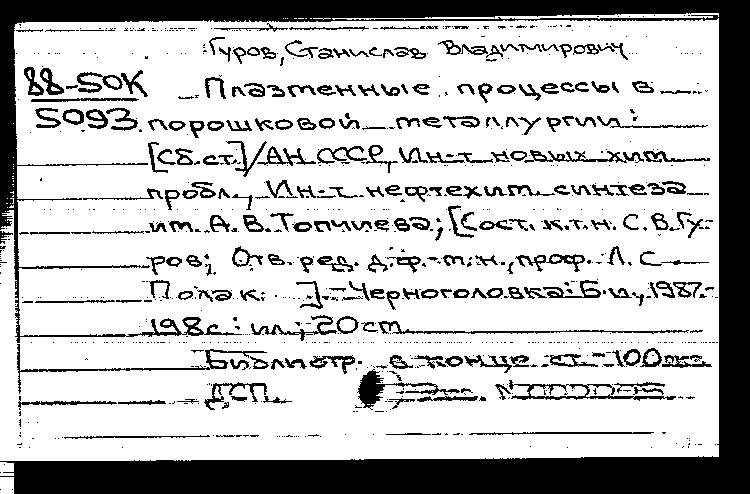 Гуров, Станислав Владимирович
88-50К Плазменные процессы в
5093 порошковой металлургии:
[Сб.ст.]/АН СССР, Ин-т новых хим.
пробл., Ин-т нефтехим. синтеза
им. А.В.Топчиева; [Сост. к.т.н. С.В.Гу-
ров; Отв. ред. д.ф.-м.н., проф. Л.С.
Полак. ].-Черноголовка: Б.и., 1987.-
198с.: ил.; 20см.
Библиогр. в конце ст.-100экз.
ДСП.